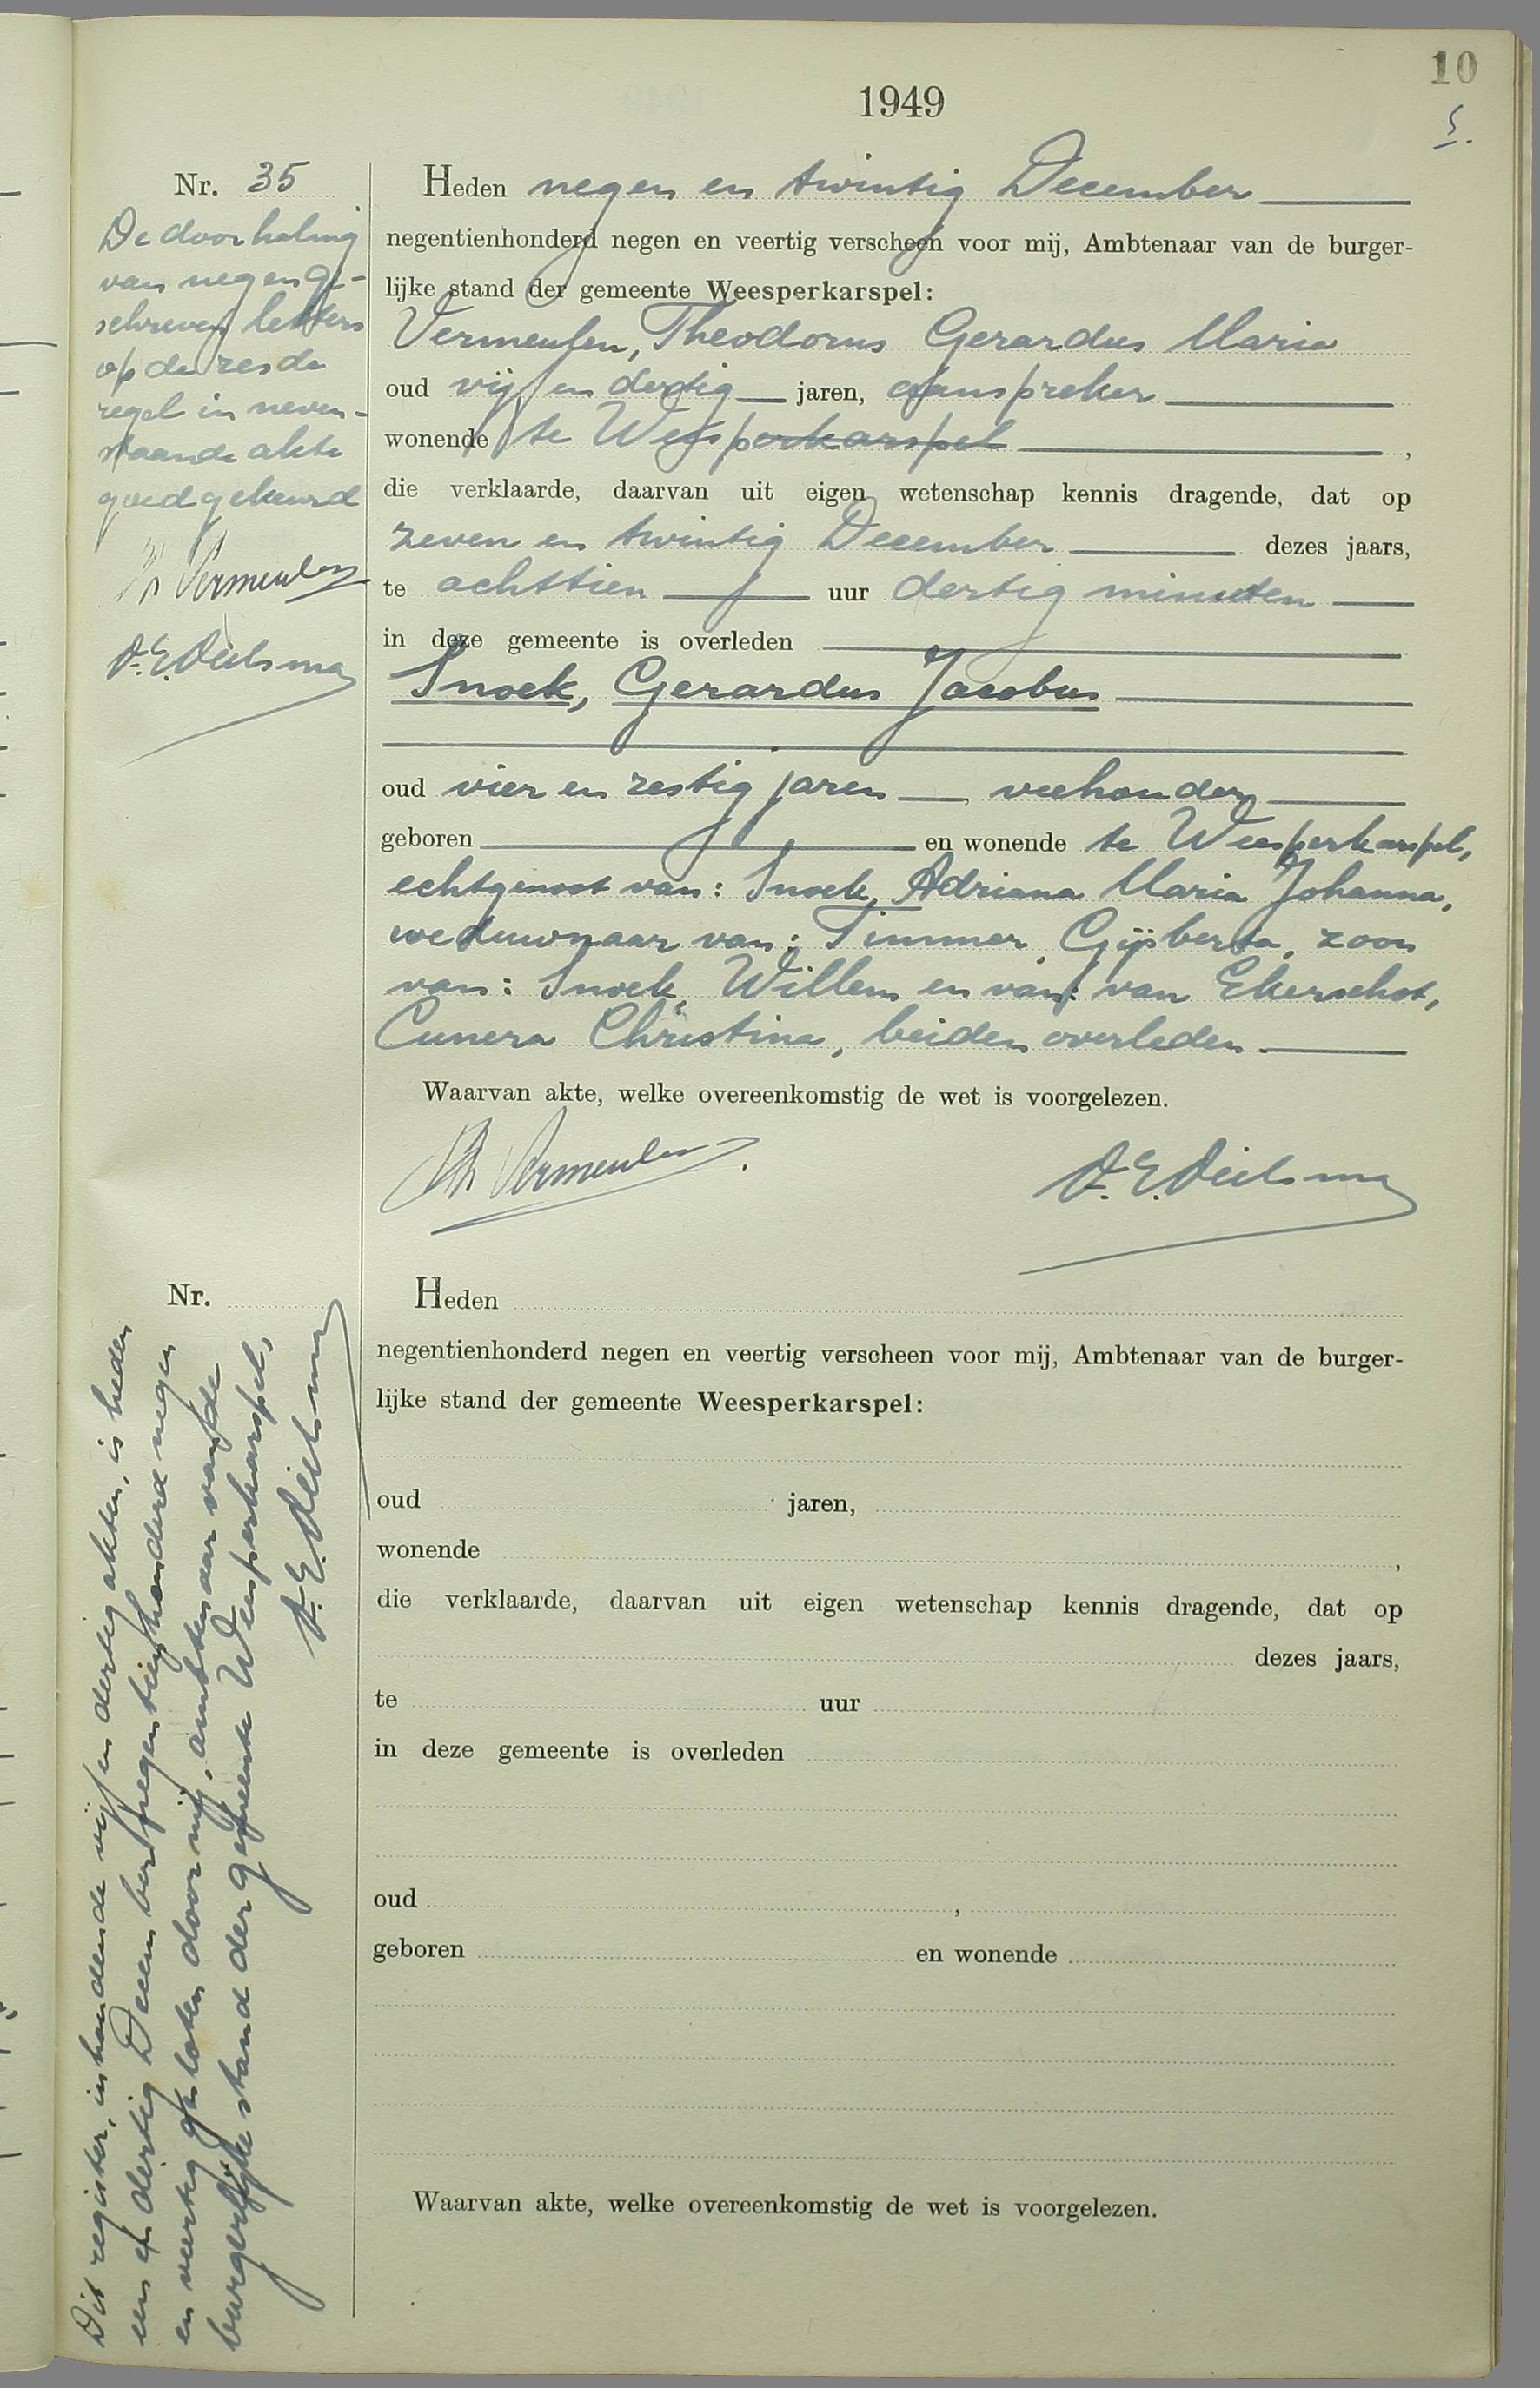 10
1949
5.
Nr. 35
De doorhaling
van negen ge-
schreven letters
op de zesde
regel in neven-
staande akte
goedgekeurd
Th Vermeulen
D.E. Dielsma
Heden negen en twintig December
negentienhonderd negen en veertig verscheen voor mij, Ambtenaar van de burger-
lijke stand der gemeente Weesperkarspel:
Vermeulen, Theodorus Gerardus Maria
oud vijf en dertig jaren, aanspreker
wonende te Weesperkarspel ,
die verklaarde, daarvan uit eigen wetenschap kennis dragende, dat op
zeven en twintig December dezes jaars,
te achttien uur dertig minuten
in deze gemeente is overleden
Snoek, Gerardus Jacobus
oud vier en zestig jaren , veehouder
geboren en wonende te Weesperkarspel,
echtgenoot van: Snoek, Adriana Maria Johanna,
weduwnaar van: Timmer, Gijsberta, zoon
van: Snoek, Willem en van: van Ekerschot,
Cunera Christina, beiden overleden
Waarvan akte, welke overeenkomstig de wet is voorgelezen.
Th Vermeulen
D.E. Dielsma
Nr.
Dit register, inhoudende vijf en dertig akten, is heden
een en dertig December negentienhonderd negen
en veertig gesloten door mij, ambtenaar van de
burgerlijke stand der gemeente Weesperkarspel,
D.E. Dielsma
Heden
negentienhonderd negen en veertig verscheen voor mij, Ambtenaar van de burger-
lijke stand der gemeente Weesperkarspel:
oud jaren,
wonende ,
die verklaarde, daarvan uit eigen wetenschap kennis dragende, dat op
dezes jaars,
te uur
in deze gemeente is overleden
oud ,
geboren en wonende
Waarvan akte, welke overeenkomstig de wet is voorgelezen.